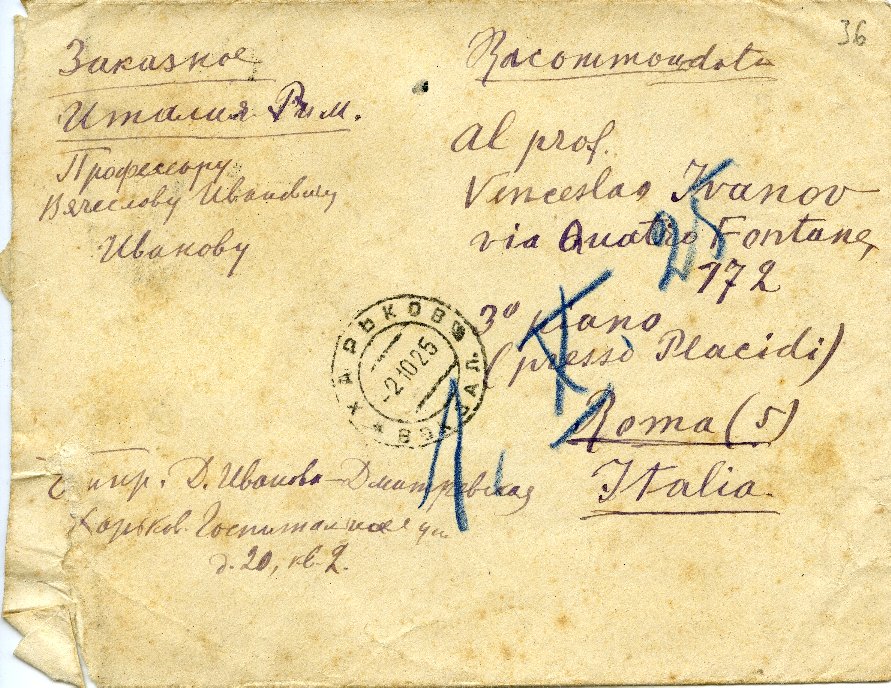 36
Заказное
Италия Рим.
Профессору
Вячеславу Ивановичу
Иванову
Racommandata
Al prof.
Venceslao Ivanov
via Quatro Fontane,
172
3º piano
(presso Placidi)
Roma (5)
Italia.
25
X
1
ХАРЬКОВ
ВОКЗАЛ
-2.10.25
Д. Иванова-Дмитревская
Харьков Госпитальная ул.
д. 20, кв. 2.